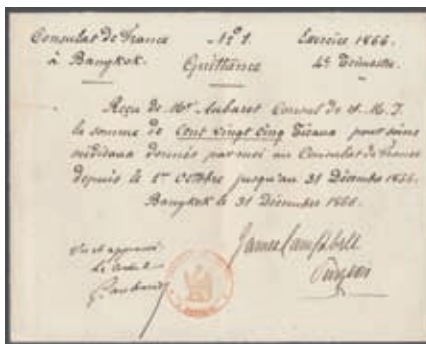 Consulat de France
à Bangkok.
N° 1.
Quittance
Exercice 1866.
4e Trimestre.
Reçu de Mr Aubaret Consul de S. M. I.
la somme de Cent vingt cinq Ticaux pour soins
médicaux donnés par moi au Consulat de France
depuis le 1er Octobre jusqu'au 31 Décembre 1866.
Bangkok le 31 Décembre 1866.
James Campbell
Surgeon
Vu et approuvé
Le Consul
G. Aubaret